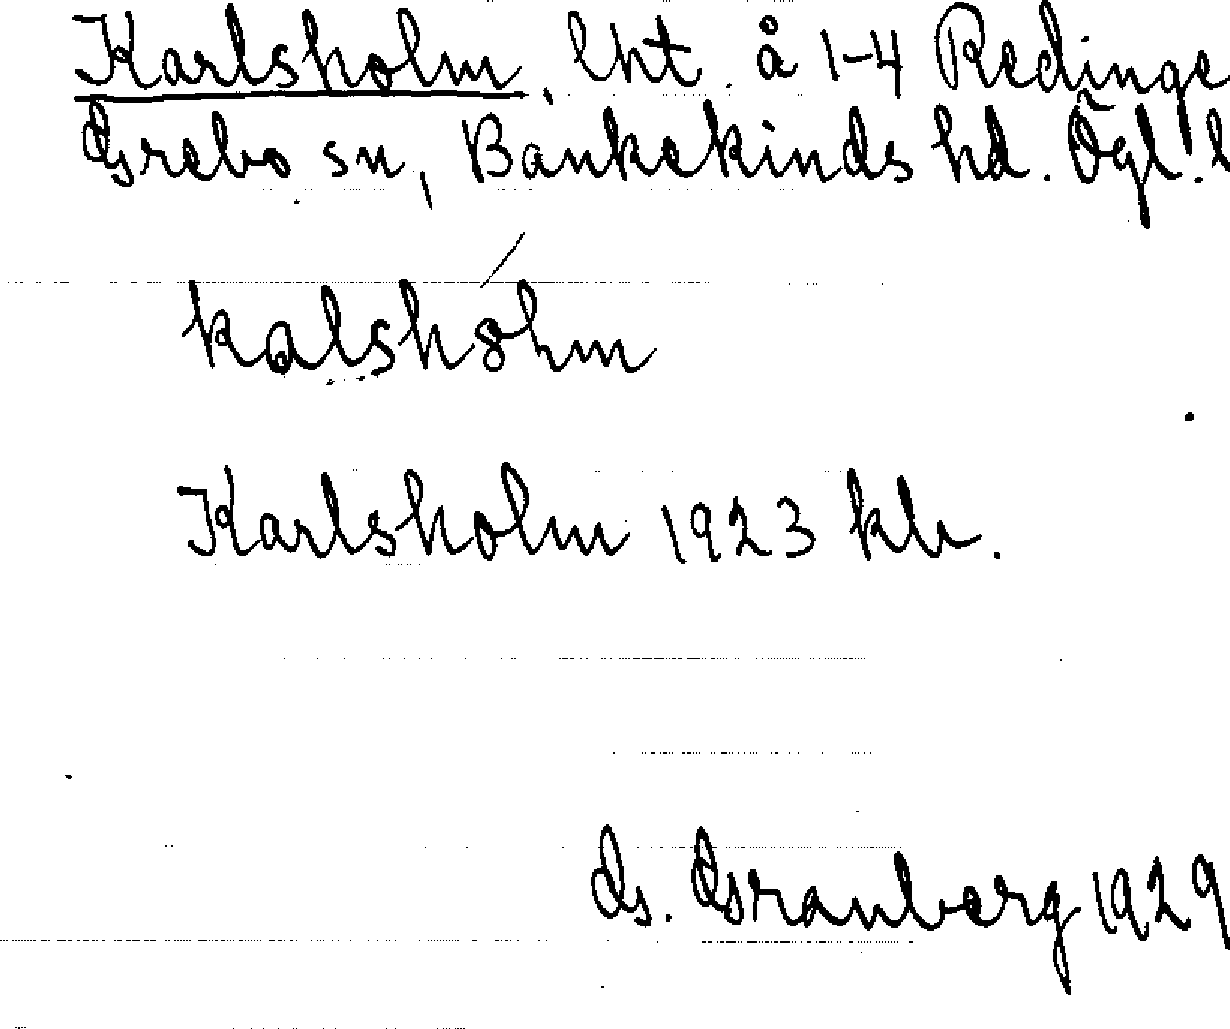 Karlsholm, lht. å 1-4 Redinge
Grebo sn, Bankekinds hd. Ögl. l
kalshòlm
Karlsholm 1923 kb.
G. Granberg 1929